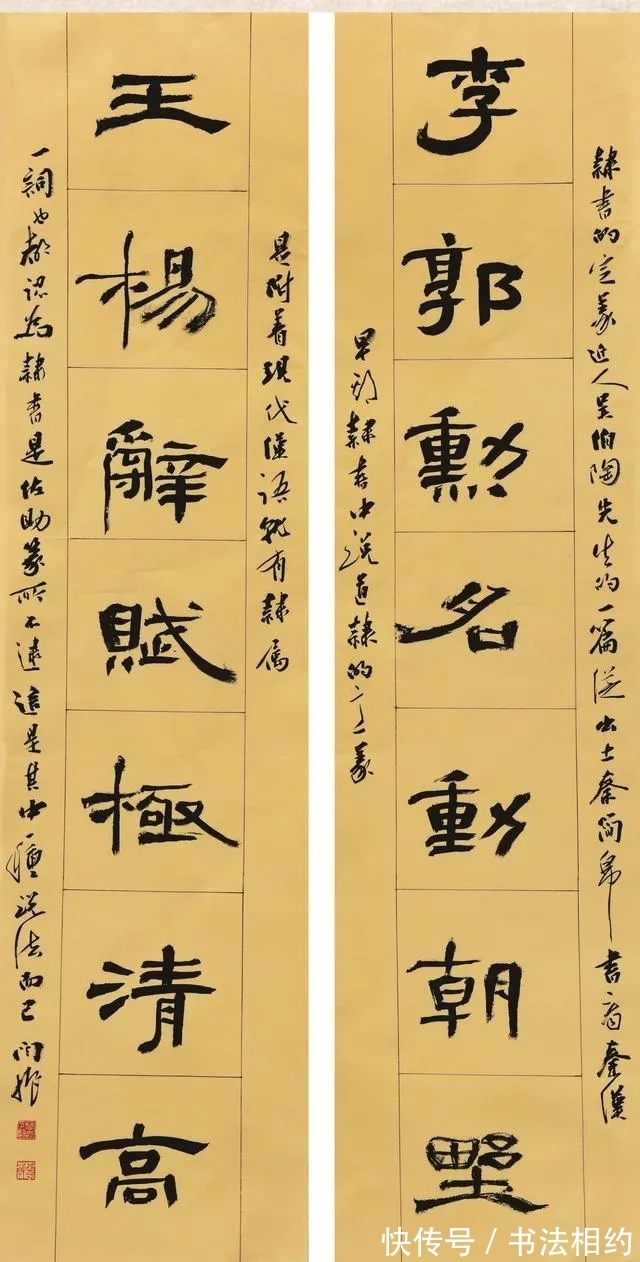 李郭勳名動朝野
王楊辭賦極清高
隸書的定義近人吳伯陶先生的一篇從出土秦简帛書看秦漢
早期隸書中説道隸的義
是附着現代漢語就有隸属
一詞也都認為隸書是佐助篆所不逮這是其中一種説法而已
快传号/书法相约